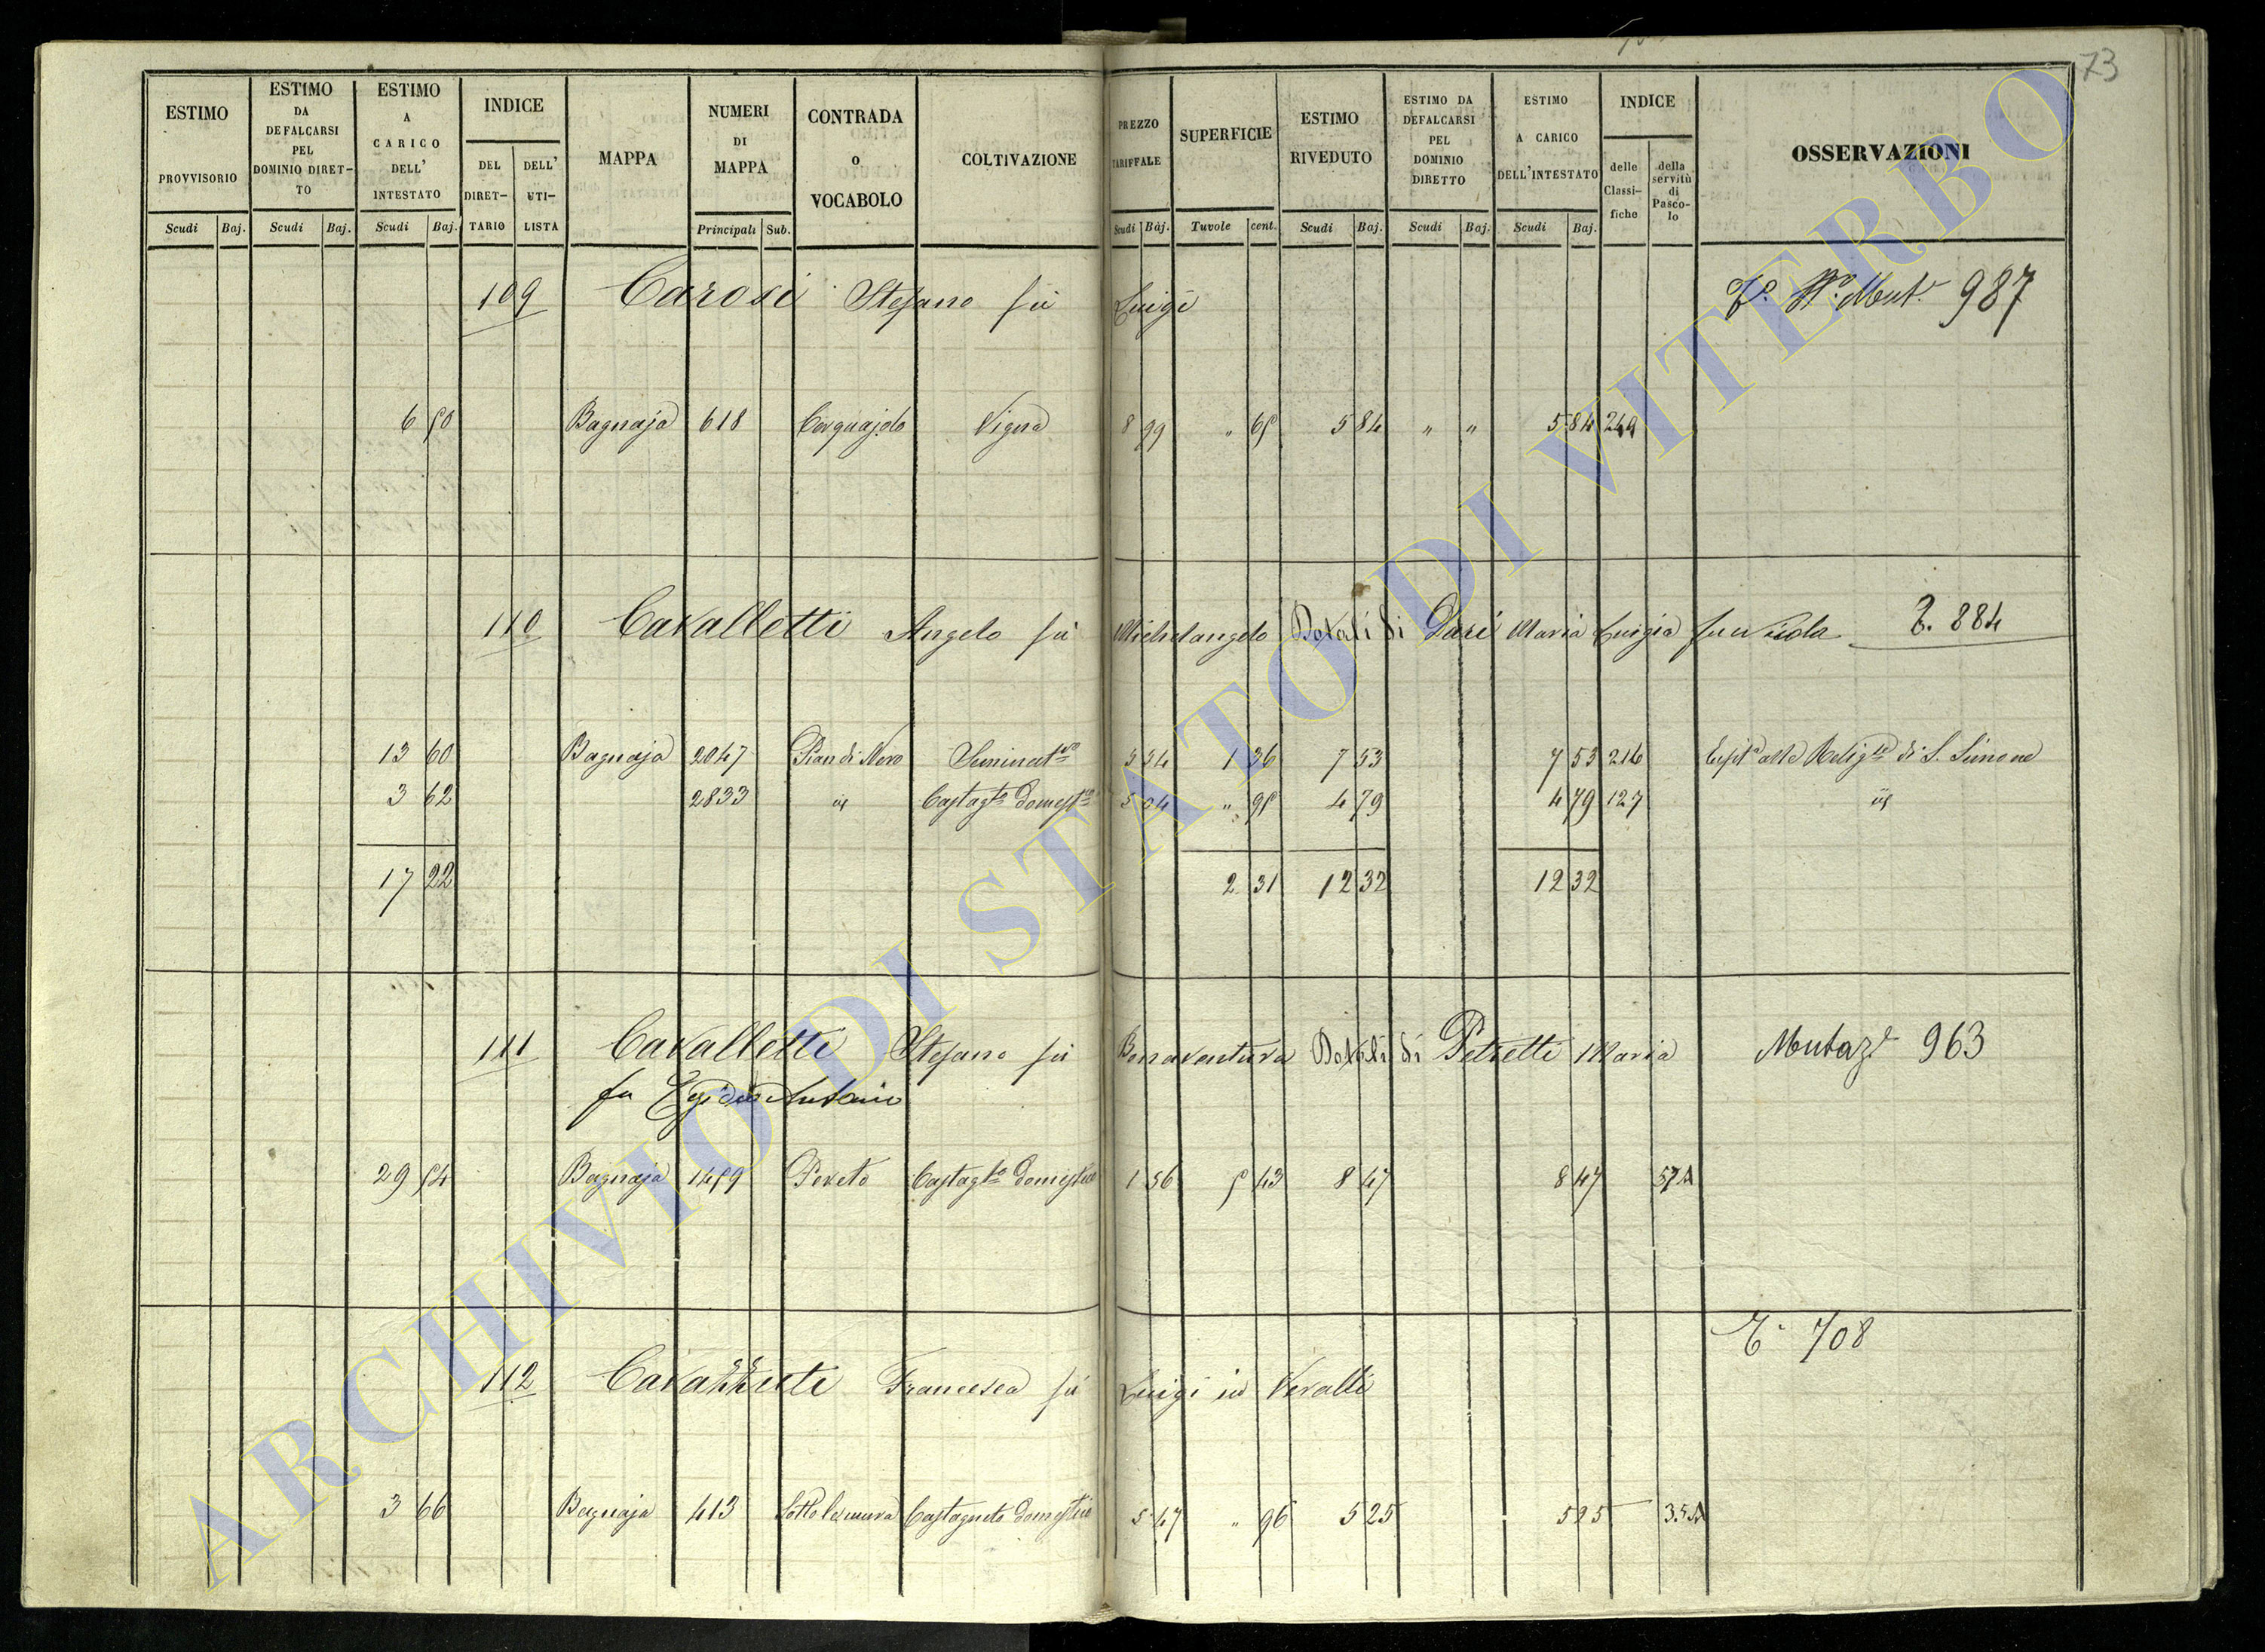 73
ESTIMO PROVVISORIO Scudi Baj.
ESTIMO DA DEFALCARSI PEL DOMINIO DIRETTO Scudi Baj.
ESTIMO A CARICO DELL' INTESTATO Scudi Baj.
INDICE DEL DIRETTARIO DELL' UTILISTA
MAPPA
NUMERI DI MAPPA Principali Sub.
CONTRADA o VOCABOLO
COLTIVAZIONE
PREZZO TARIFFALE Scudi Baj.
SUPERFICIE Tavole cent.
ESTIMO RIVEDUTO Scudi Baj.
ESTIMO DA DEFALCARSI PEL DOMINIO DIRETTO Scudi Baj.
ESTIMO A CARICO DELL'INTESTATO Scudi Baj.
INDICE delle Classifiche della servitù di Pascolo
OSSERVAZIONI
109 Carosi Stefano fù Luigi 987
6 50 Bagnaja 618 Vigna 8 99 " 65 5 84 " " 5 84 249
110 Cavalletti Angelo fù Michelangelo Dotali di Dari Maria Luigia fu Nicola 884
13 60 Bagnaja 2047 Pian di Nero Seminatvo 5 54 1 36 7 53 7 53 216 alla Religne di S. Simone
3 62 2833 id Castagto domestco 5 04 " 95 4 79 4 79 127 id
17 22 2 31 12 32 12 32
111 Cavalletti Stefano fù Bonaventura Dotali di Petretti Maria Mutaze 963
fu Egidio Antonio
29 54 Bagnaja 1459 Poveto Castagto domestico 1 56 5 43 8 47 8 47 57A
708
112 Cavazzuti Francesca fù Luigi in Veralli
3 66 Bagnaja 413 Sotto le mura Castagneto domestico 5 47 " 96 5 25 5 25 35A
ARCHIVIO DI STATO DI VITERBO